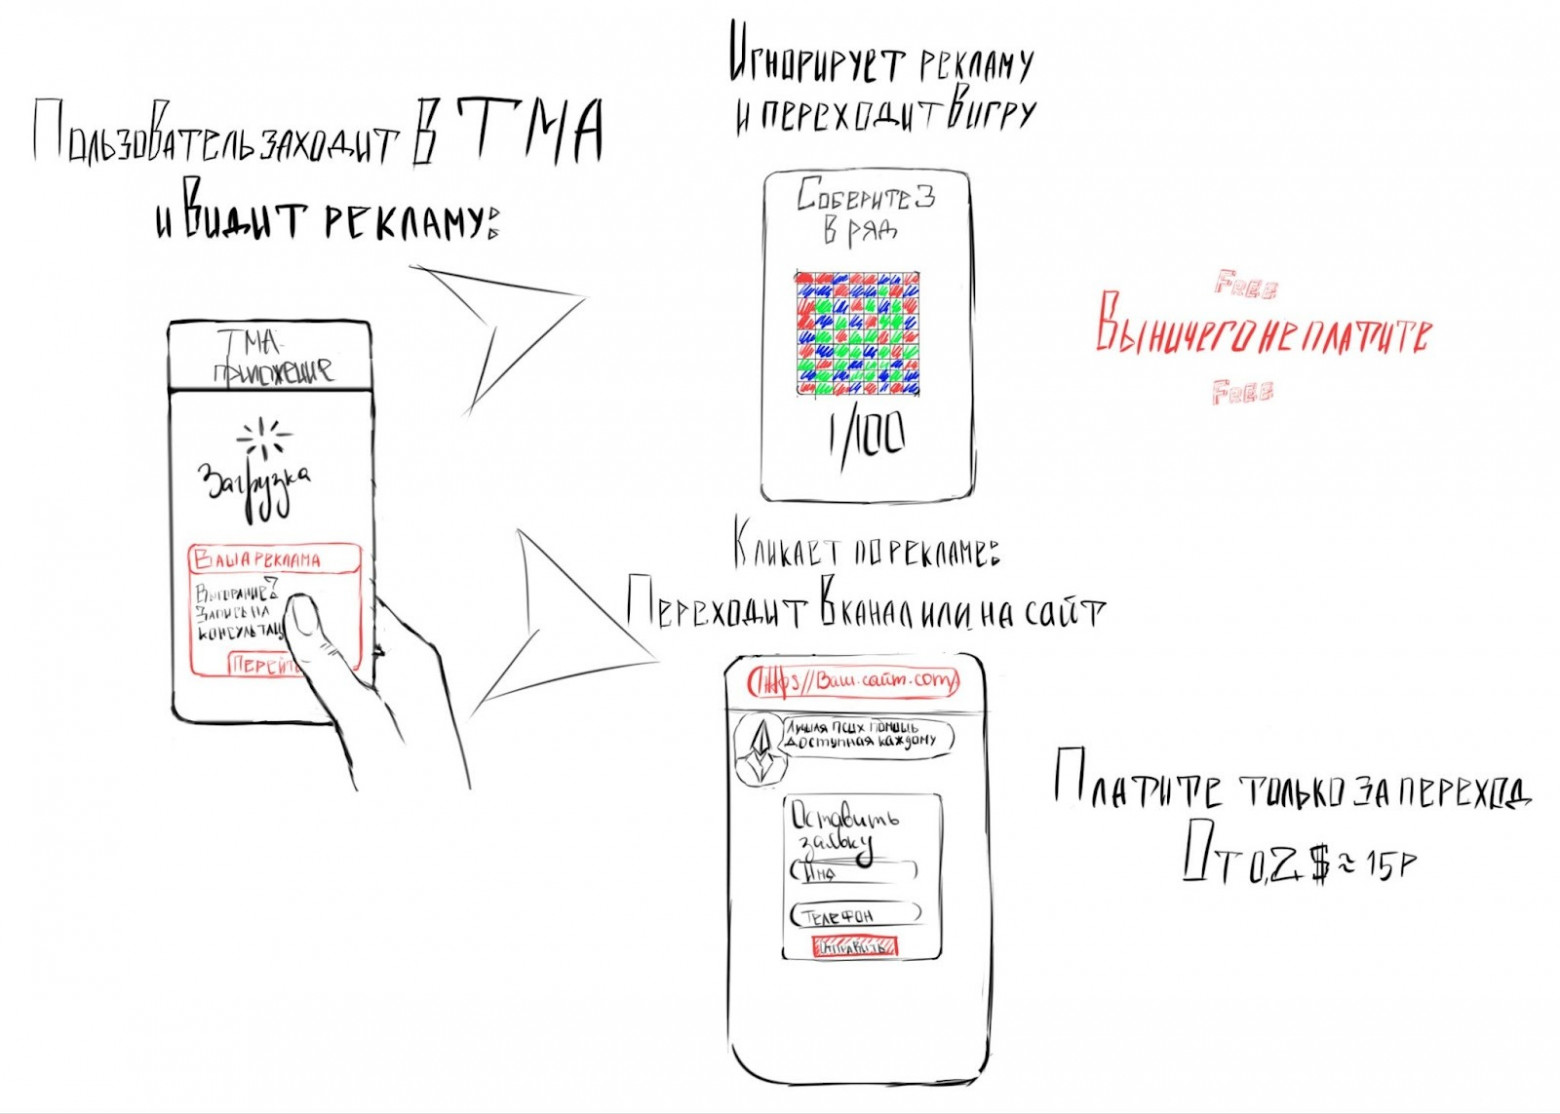 Пользователь заходит в ТМА
и видит рекламу:
ТМА-
приложение
Загрузка
Ваша реклама
Выгорание?
Запись на
консультац
Перейти
Игнорирует рекламу
и переходит в игру
Соберите 3
в ряд
1/100
Free
Вы ничего не платите
Free
Кликает по рекламе:
Переходит в канал или на сайт
https//Ваш.сайт.com
Лучшая псих помощь
доступная каждому
Оставить
заявку
Имя
Телефон
отправить
Платите только за переход
От 0,2 $ ≈ 15р